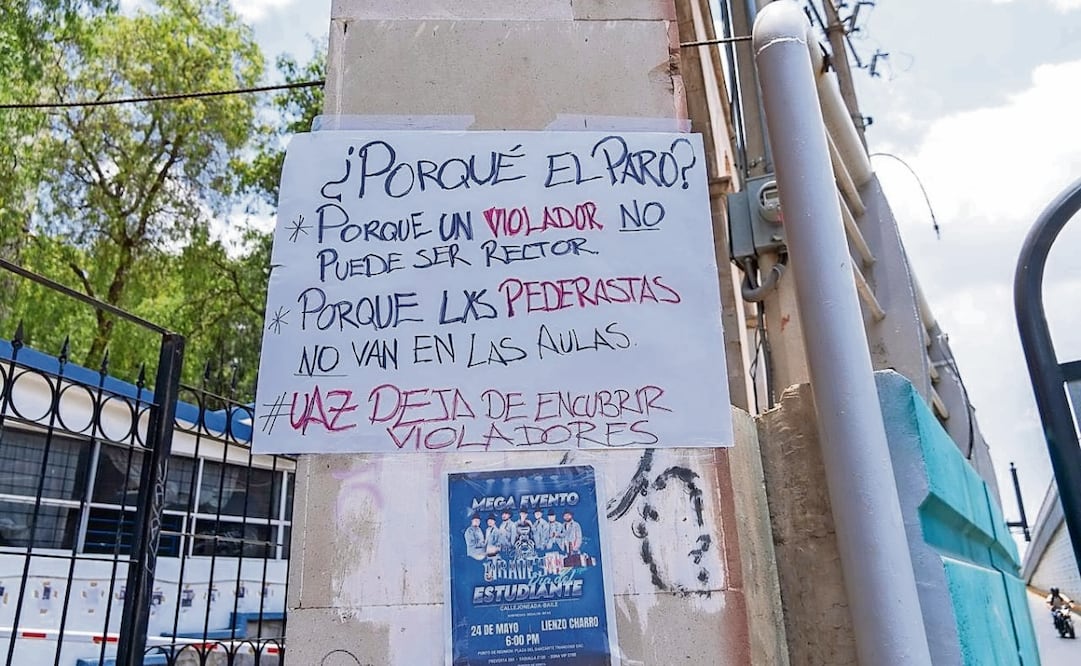 ¿PORQUÉ EL PARO?
* PORQUE UN VIOLADOR NO
PUEDE SER RECTOR.
* PORQUE LXS PEDERASTAS
NO VAN EN LAS AULAS.
#UAZ DEJA DE ENCUBRIR
VIOLADORES
MEGA EVENTO
Dia del
ESTUDIANTE
CALLEJONEADA-BAILE
24 DE MAYO
6:00 PM
LIENZO CHARRO